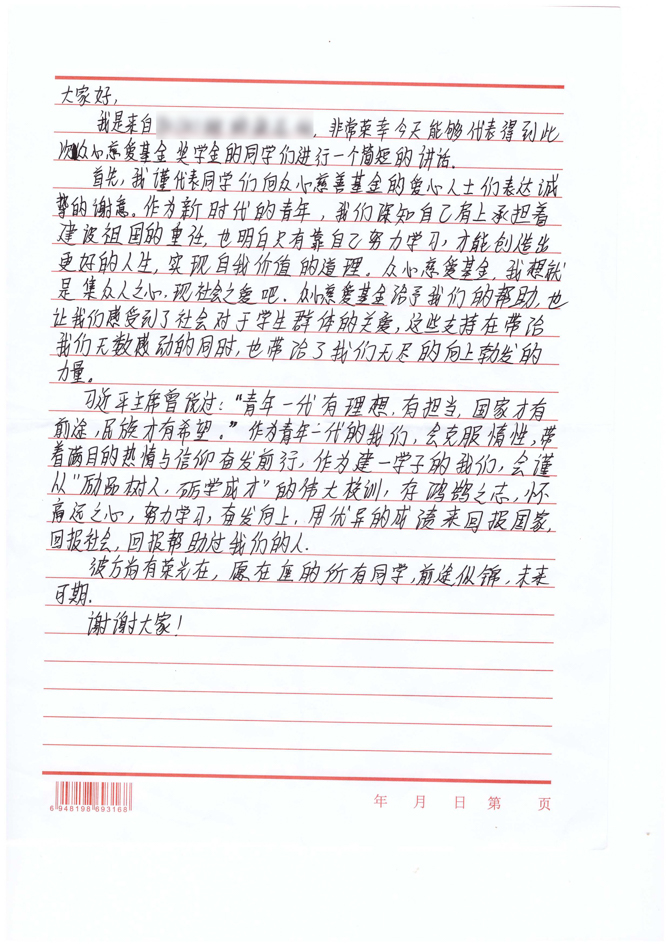 大家好,
我是来自 , 非常荣幸今天能够代表得到此
次众心慈爱基金奖学金的同学们进行一个简短的讲话.
首先,我谨代表同学们向众心慈善基金的爱心人士们表达诚
挚的谢意。作为新时代的青年,我们深知自己肩上承担着
建设祖国的重任,也明白只有靠自己努力学习,才能创造出
更好的人生,实现自我价值的道理。众心慈爱基金,我想就
是集众人之心,现社会之爱吧.众心慈爱基金给予我们的帮助,也
让我们感受到了社会对于学生群体的关爱,这些支持在带给
我们无数感动的同时,也带给了我们无尽的向上勃发的
力量。
习近平主席曾说过:“青年一代有理想,有担当,国家才有
前途,民族才有希望。”作为青年一代的我们,会克服惰性,带
着满目的热情与信仰奋发前行,作为建一学子的我们,会谨
从“励品树人,砺学成才”的伟大校训,存鸿鹄之志,怀
高远之心,努力学习,奋发向上,用优异的成绩来回报国家,
回报社会,回报帮助过我们的人.
彼方尚有荣光在,愿在座的所有同学,前途似锦,未来
可期.
谢谢大家!
6 948198 693168
年 月 日 第 页